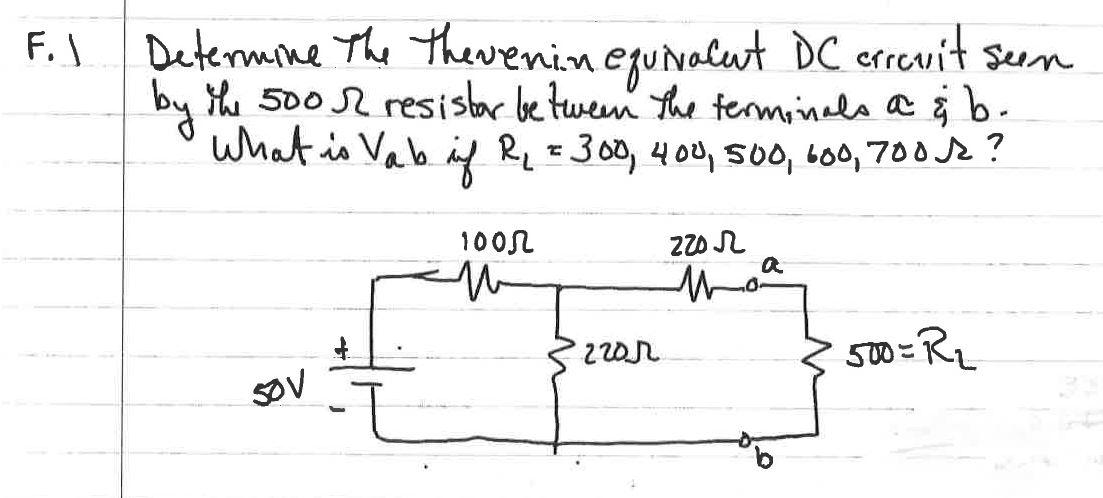 F.1 Determine The Thevenin equivalent DC circuit seen
by the 500 Ω resistor between the terminals a & b.
What is Vab if RL = 300, 400, 500, 600, 700 Ω ?
100Ω
220 Ω
a
+
220Ω
500 = RL
50V
-
b